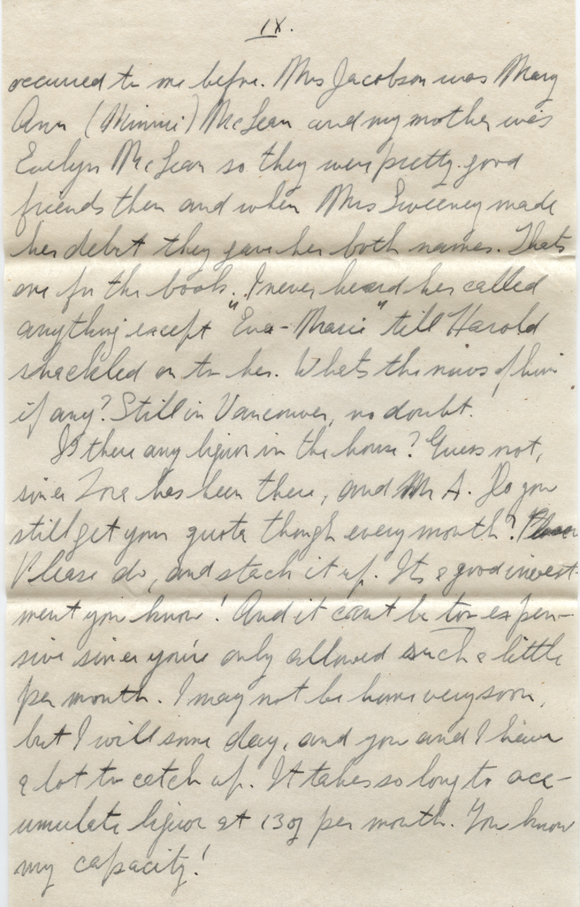 IX.
occurred to me before. Mrs Jacobson was Mary
Ann (Minnie) McLean and my mother was
Evelyn McLean so they were pretty good
friends then and when Mrs Sweeney made
her debut they gave her both names. Thats
one for the books. I never heard her called
anything except "Eva-Marie" till Harold
shackled on to her. Whats the news of him
if any? Still in Vancouver, no doubt!
Is there any liquor in the house? Guess not,
since Zora has been there, and Mr A. Do you
still get your quota though every month?
Please do, and stack it up. Its a good invest-
ment you know! And it cant be too expen-
sive since you're only allowed such a little
per month. I may not be home very soon,
but I will some day, and you and I have
a lot to catch up. It takes so long to acc-
umulate liquor at 13oz per month. You know
my capacity!